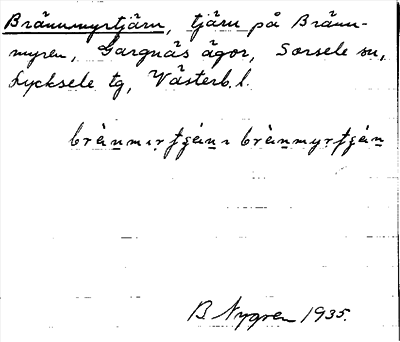 Brännmyrtjärn, tjärn på Bränn-
myren, Gargnäs ägor, Sorsele sn,
Lycksele tg, Västerb. l.
B Nygren 1935.